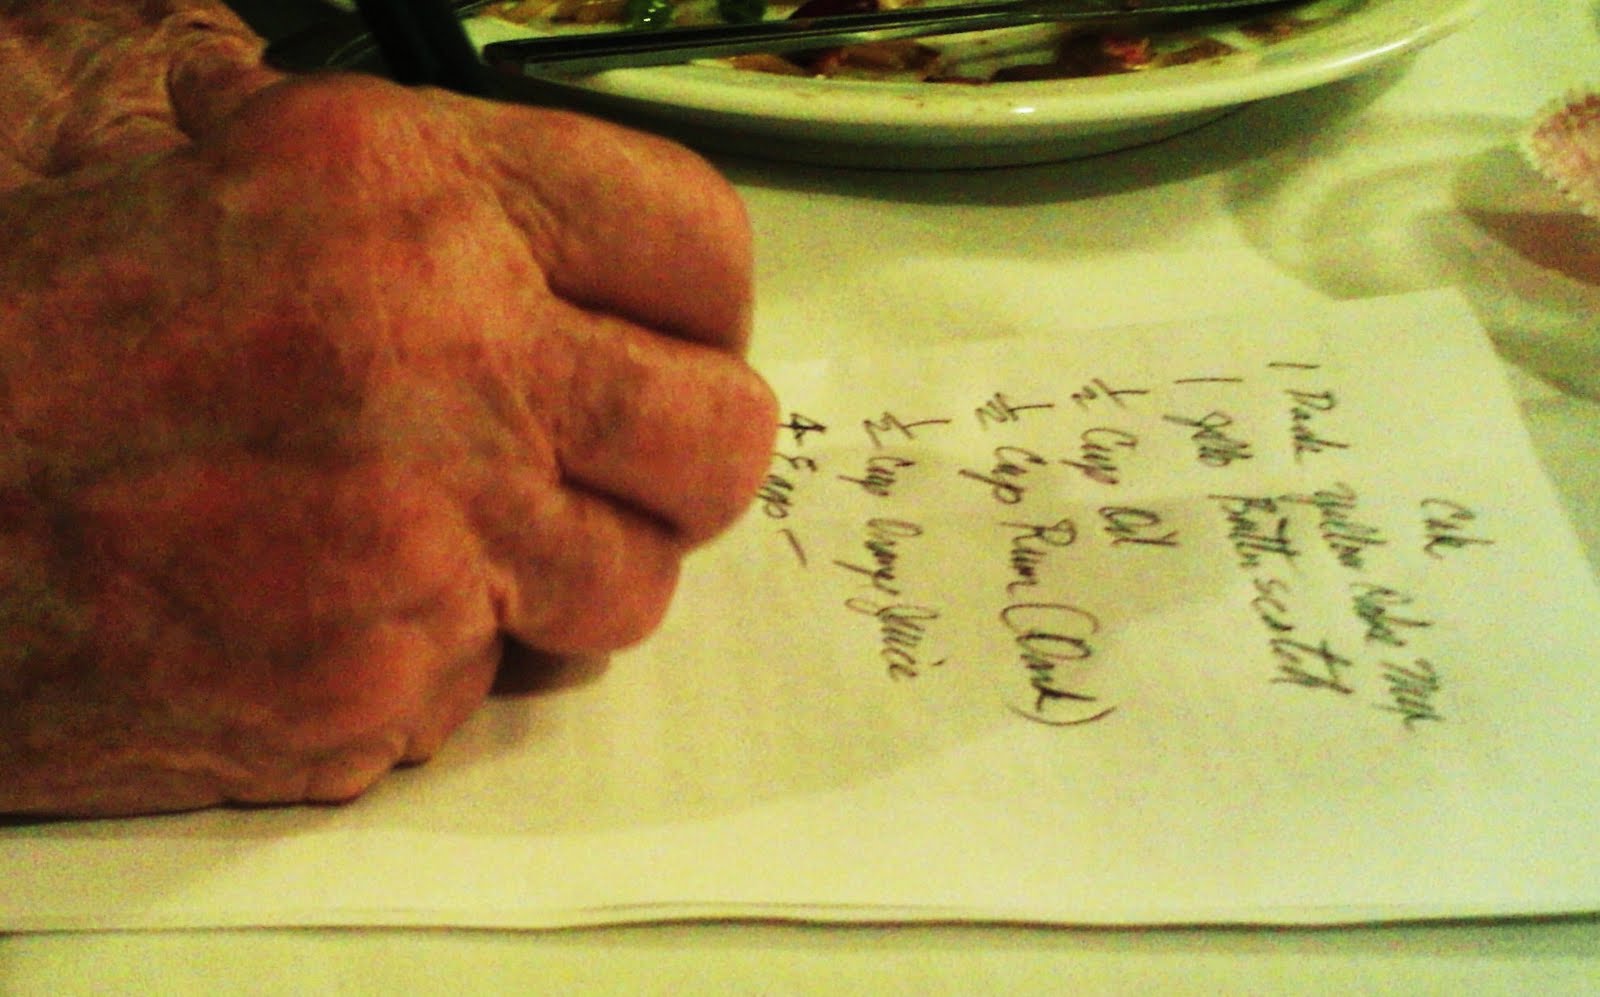 Cake
1 Duck yellow Cake Mix
1 Jello Butterscotch
½ Cup Oil
½ Cup Rum (Dark)
½ Cup Orange Juice
4 Eggs –